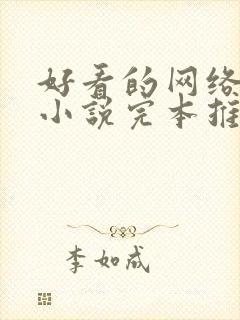 好看的网络
小说完本推
李如成